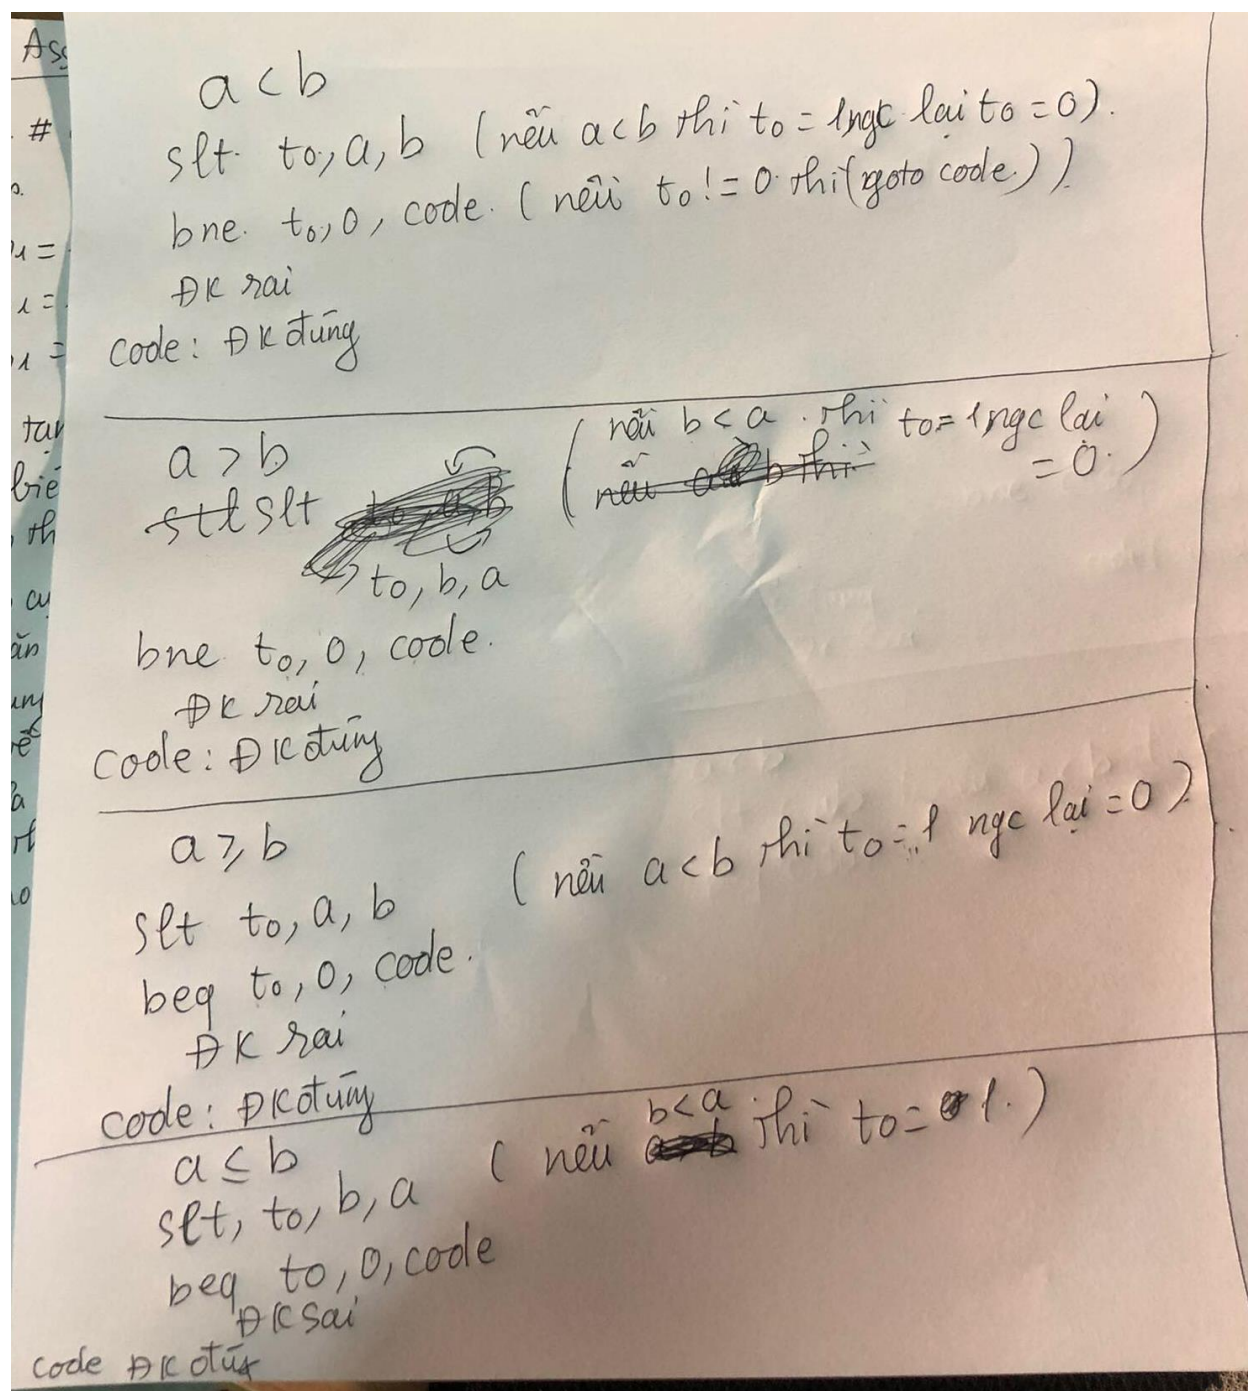 Ass
#
a < b
slt to, a, b (nếu a<b thì to = 1 ngc lại to = 0).
bne. to, 0, code. (nếu to != 0 thì (goto code.))
ĐK sai
code: ĐK đúng
a > b
slt (nếu b < a. thì to = 1 ngc lại = 0.)
to, b, a
bne to, 0, code.
ĐK sai
code: ĐK đúng
a ⩾ b
slt to, a, b (nếu a < b thì to = 1 ngc lại = 0)
beq to, 0, code.
ĐK sai
code: ĐK đúng
a ≤ b
slt, to, b, a (nếu b<a thì to = 1.)
beq to, 0, code
ĐK sai
code ĐK đúng